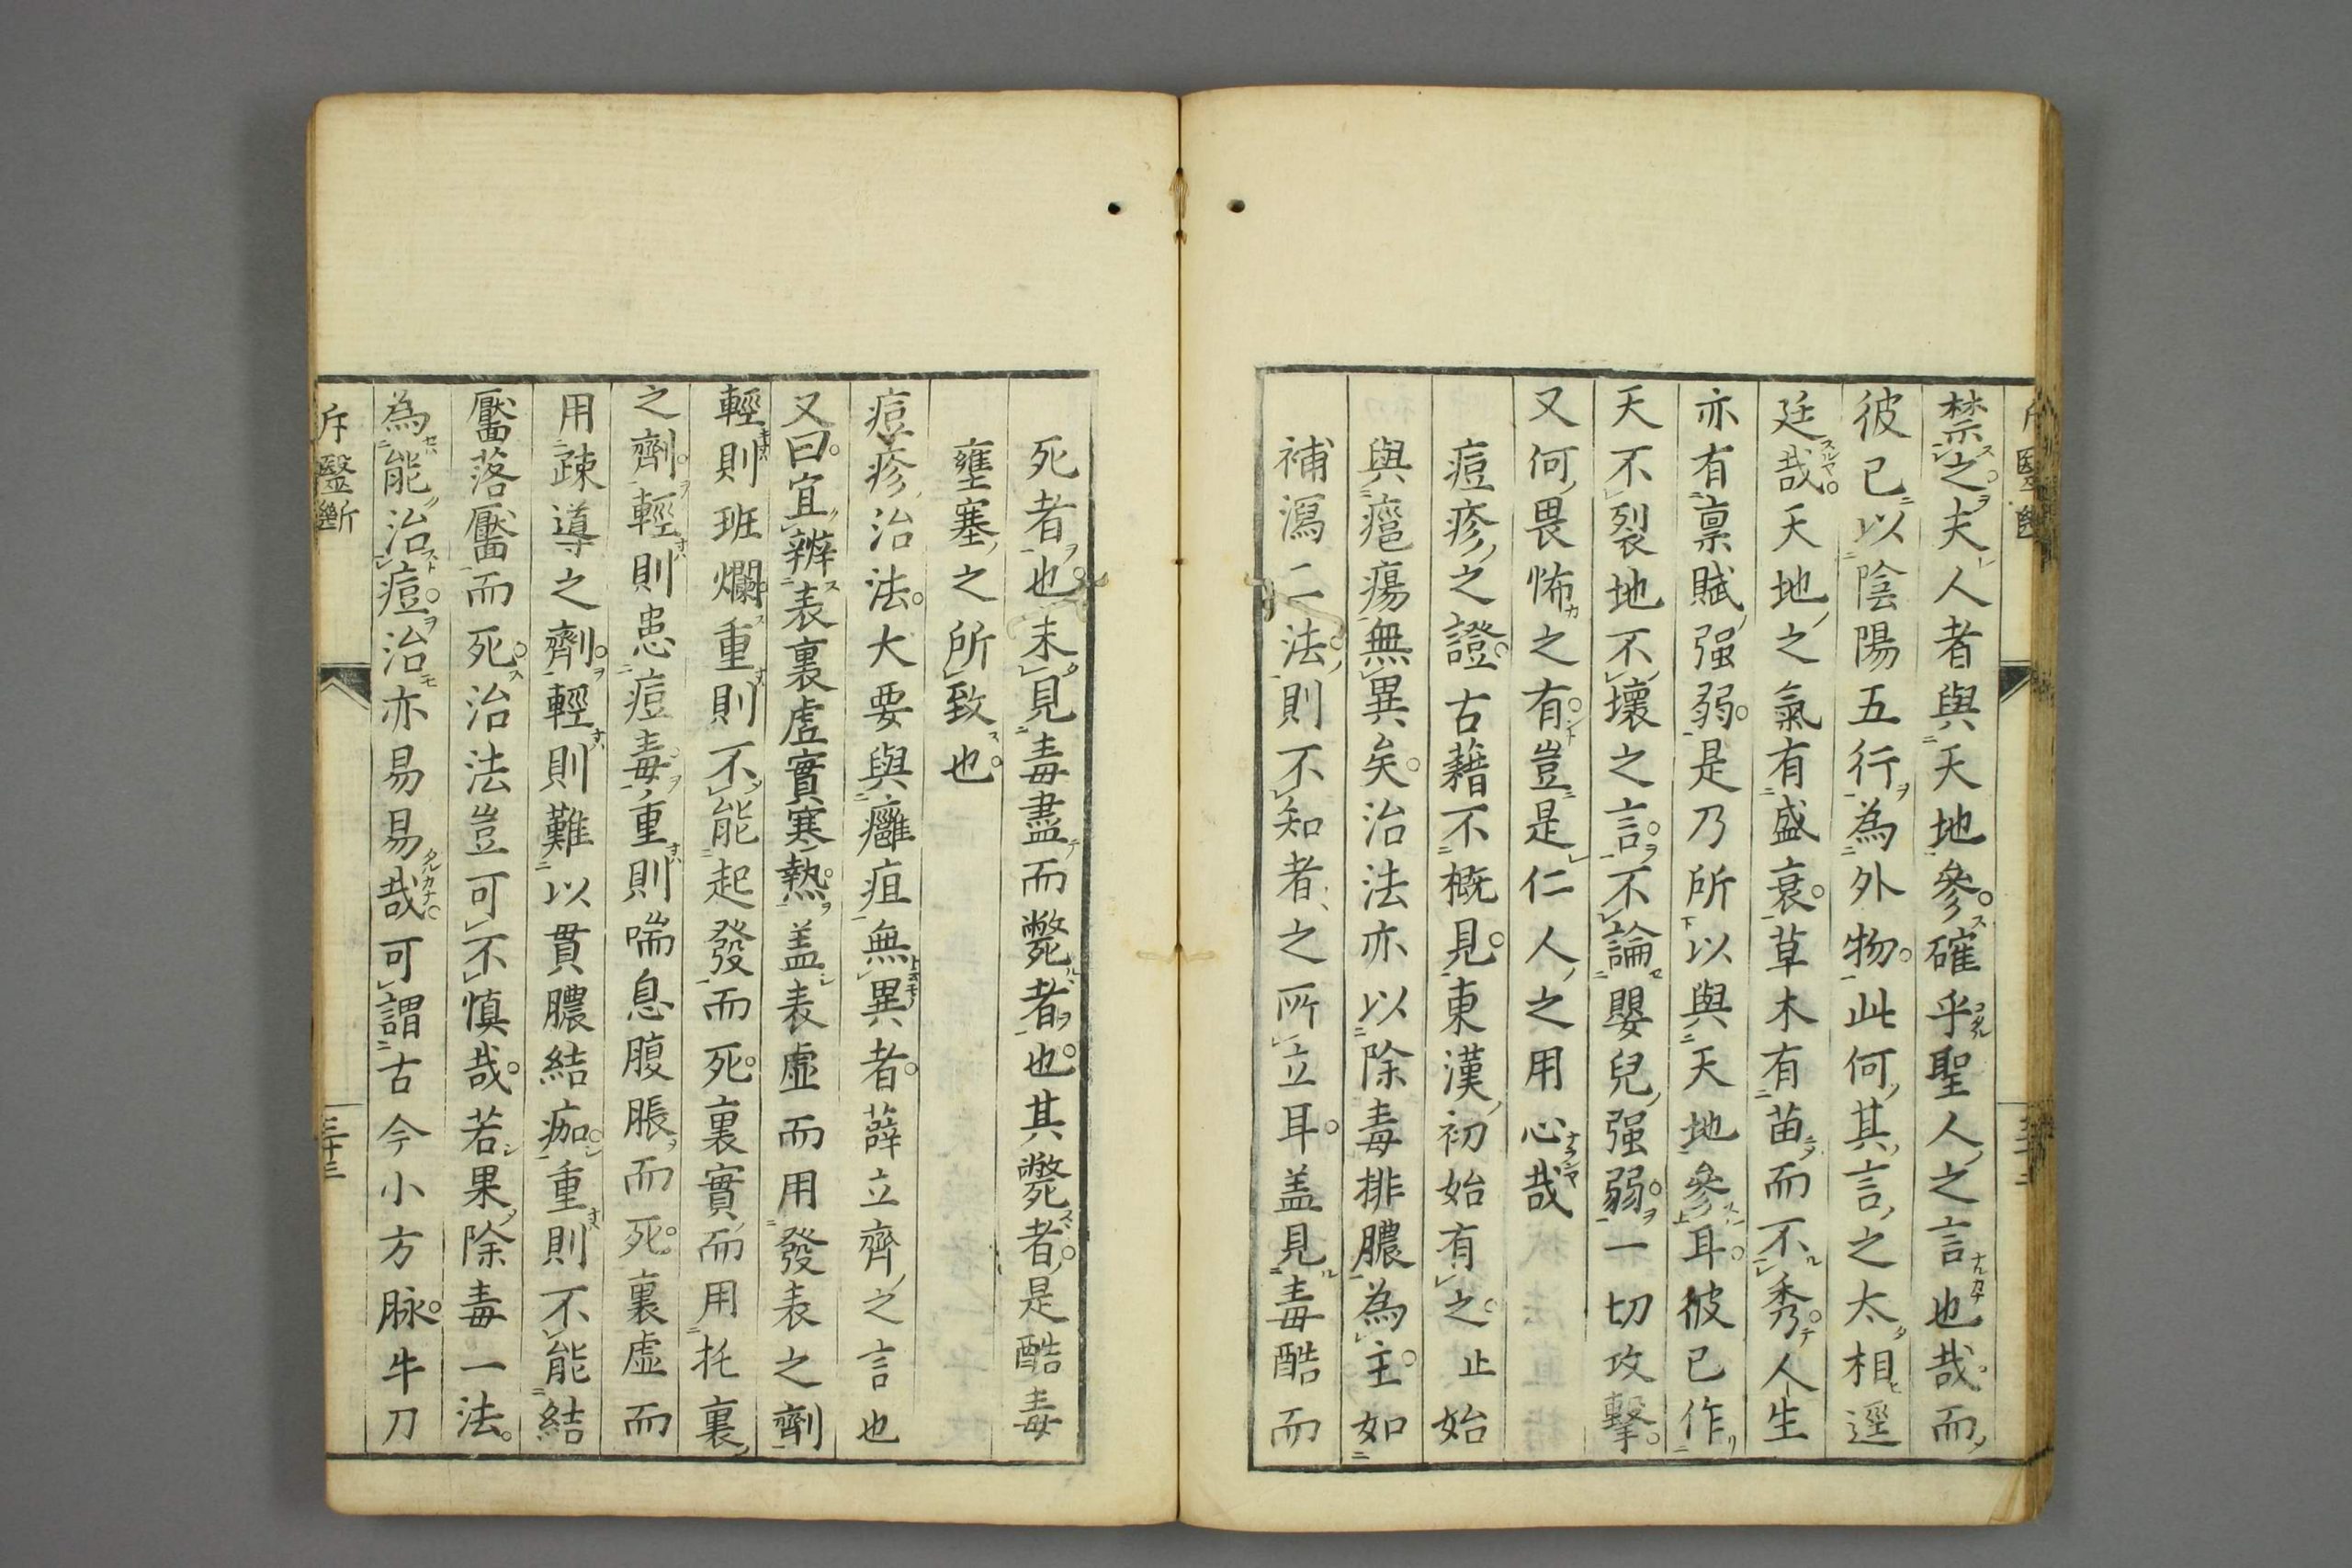 禁之夫人者與天地參確乎聖人之言也哉而
彼已以陰陽五行為外物此何其言之太相逕
廷哉天地之氣有盛衰草木有苗而不秀人生
亦有禀賦强弱是乃所以與天地參耳彼已作
天不裂地不壞之言不論嬰兒强弱一切攻擊
又何畏怖之有豈是仁人之用心哉
痘疹之證古藉不概見東漢初始有之止始
與瘡瘍無異矣治法亦以除毒排膿為主如
補瀉二法則不知者之所立耳盖見毒酷而
死者也未見毒盡而斃者也其斃者是酷毒
壅塞之所致也
痘疹治法大要與癰疽無異者薛立齊之言也
又曰宜辨表裏虛實寒熱盖表虛而用發表之劑
輕則班爛重則不能起發而死裏實而用托裏
之劑輕則患痘毒重則喘息腹脹而死裏虛而
用疎導之劑輕則難以貫膿結痂重則不能結
靨落靨而死治法豈可不慎哉若果除毒一法
為能治痘治亦易易哉可謂古今小方脉牛刀
斥醫斷
三十三